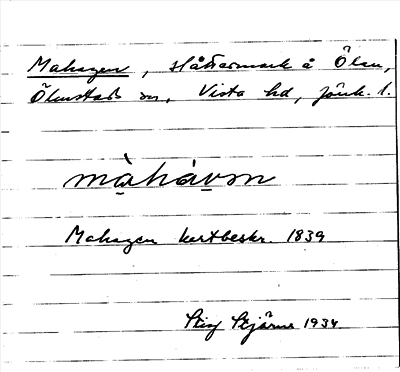 Mahagen, slåttermark å Ölen,
Ölmstads sn, Vista hd, Jönk. l.
màhàvm
Mahagen kartbeskr. 1839
Stig Stjärne 1934